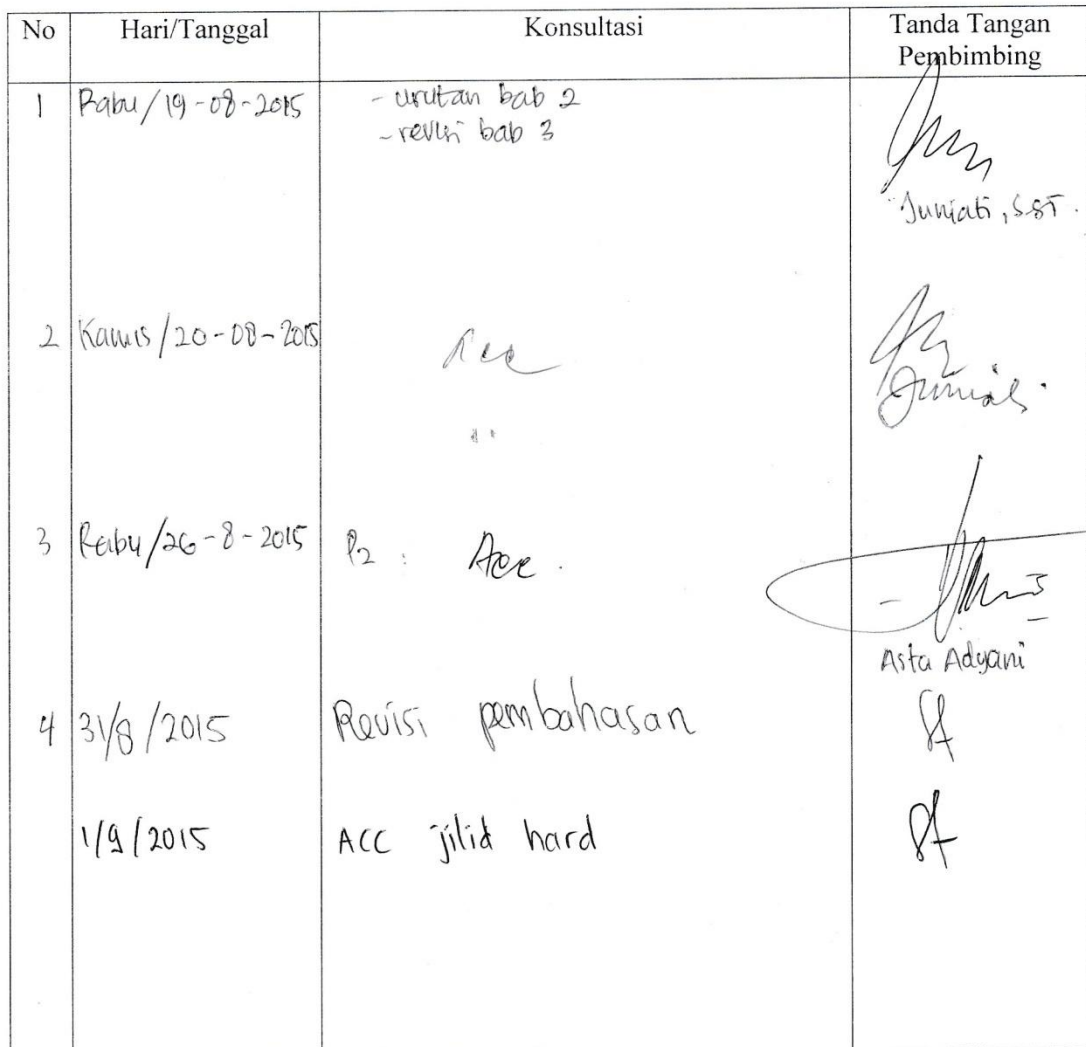 No Hari/Tanggal Konsultasi Tanda Tangan
Pembimbing
1 Rabu/19-08-2015 - urutan bab 2
- revisi bab 3
Juniati, SST.
2 Kamis/20-08-2015 Acc
Juniati
3 Rabu/26-8-2015 P2 : Acc.
Asta Adyani
4 31/8/2015 Revisi pembahasan
1/9/2015 ACC jilid hard